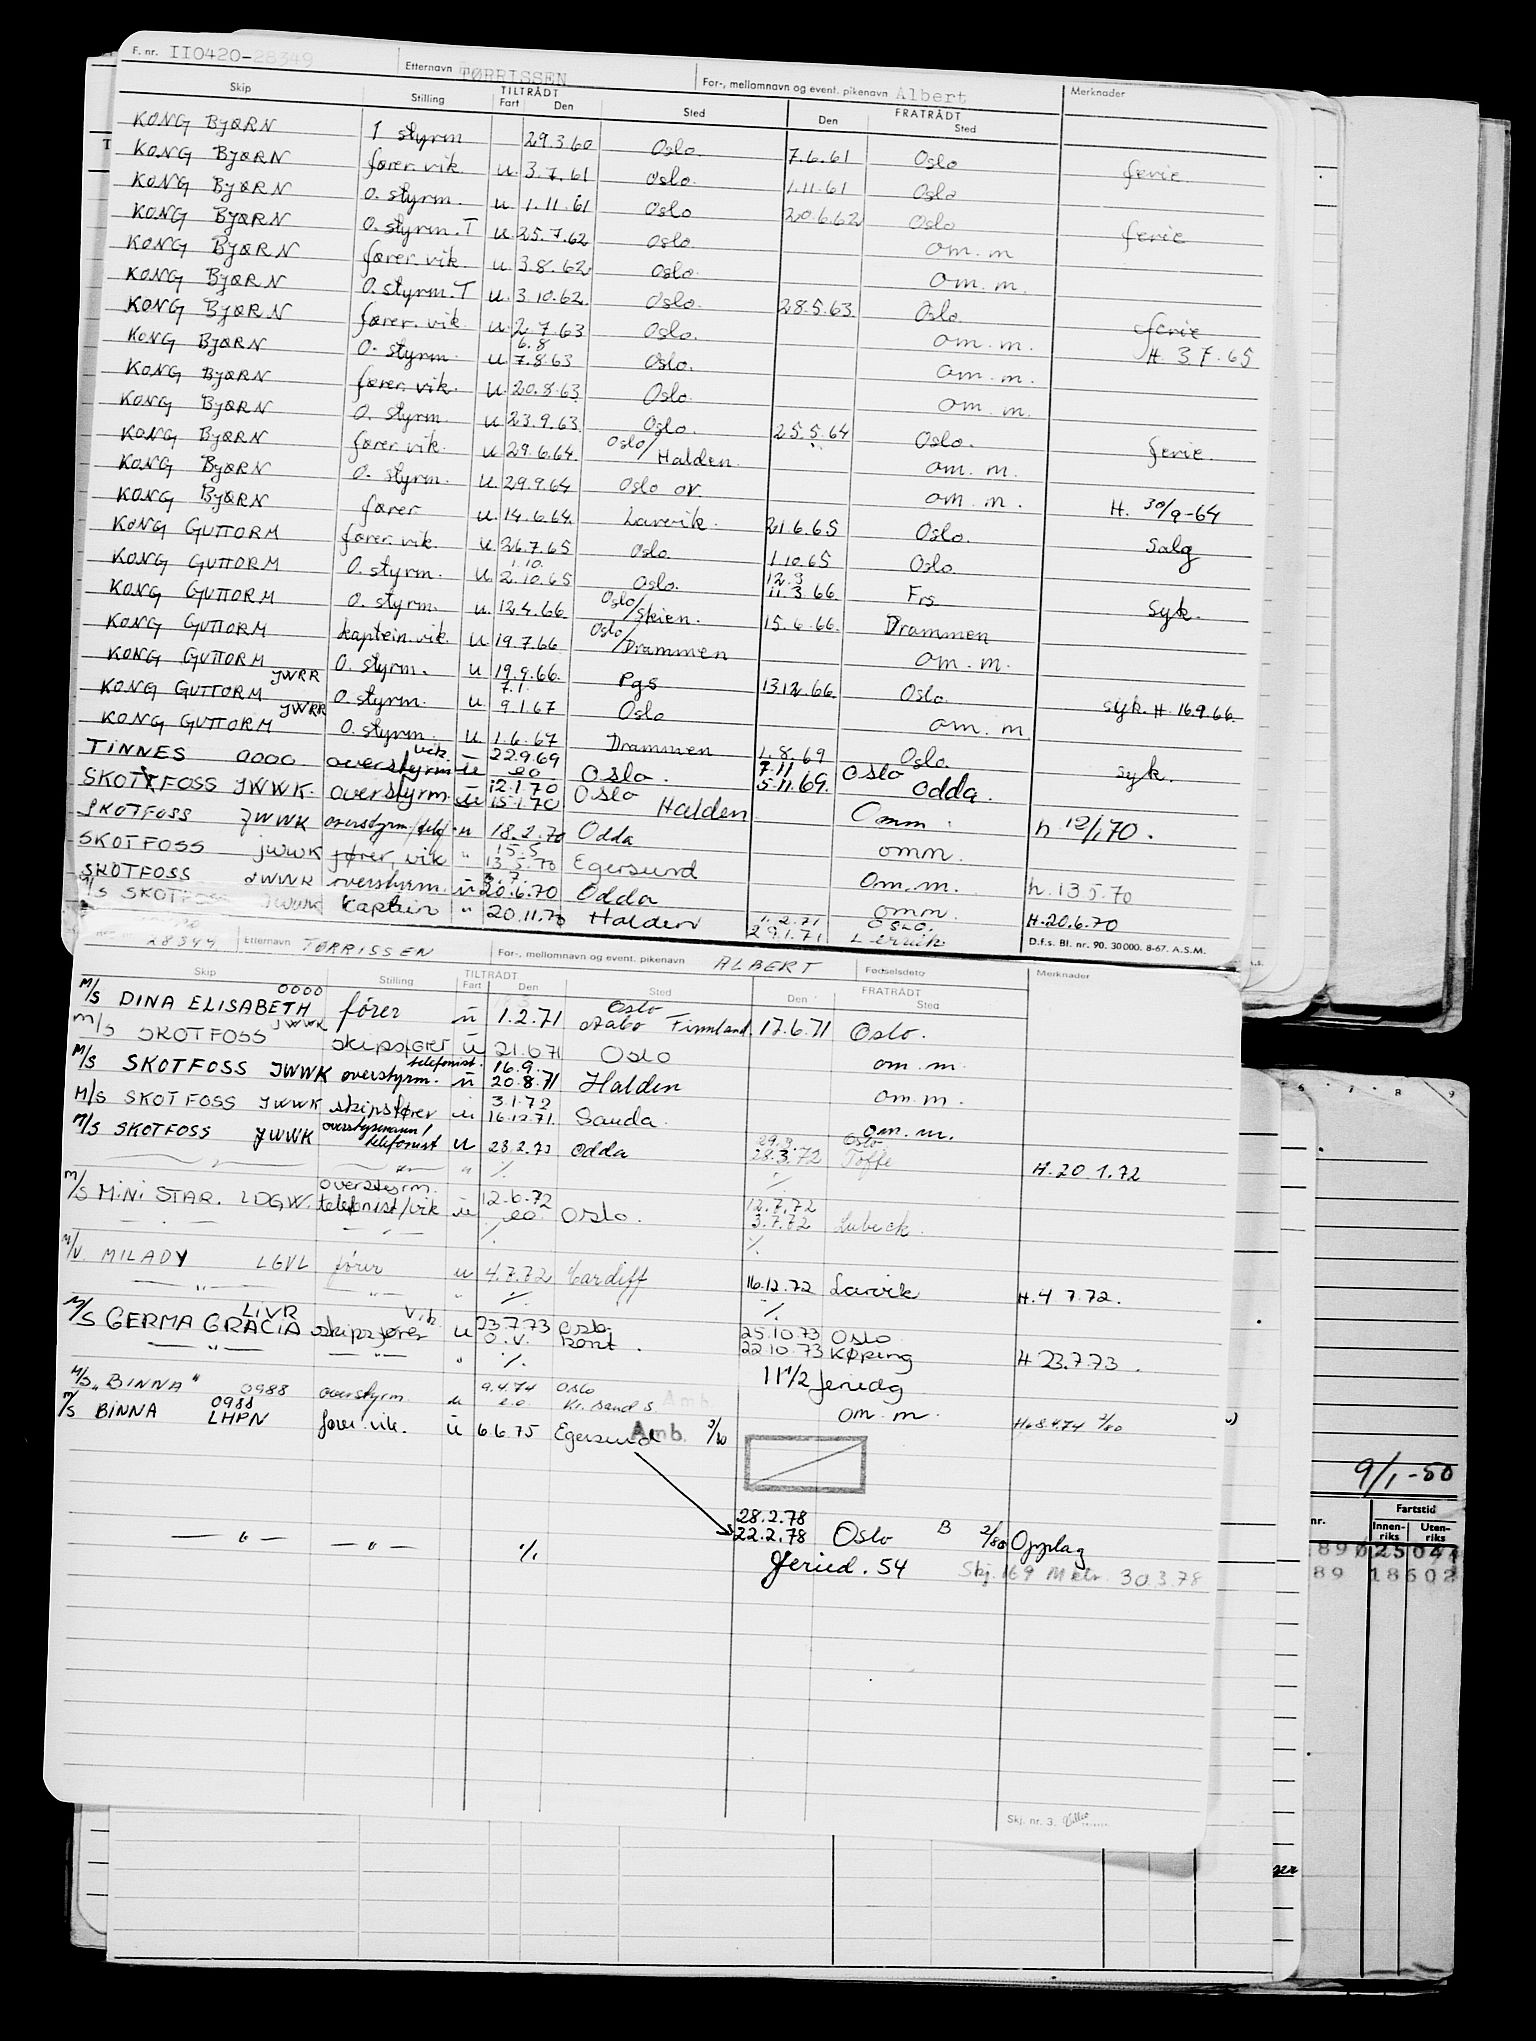 F. nr. 110420-28349 Etternavn TØRRISSEN For-, mellomnavn og event. pikenavn Albert Merknader
Skip Stilling TILTRÅDT Fart Den Sted FRATRÅDT Den Sted
KONG BJØRN 1 styrm 29.3.60 Oslo. 7.6.61 Oslo ferie
KONG BJØRN fører vik. u. 3.7.61 Oslo. 1.11.61 Oslo
KONG BJØRN O. styrm. u. 1.11.61 Oslo 20.6.62 Oslo ferie
KONG BJØRN O. styrm. T u. 25.7.62 Oslo om. m
KONG BJØRN fører vik. u. 3.8.62 Oslo. om. m.
KONG BJØRN O. styrm. T u. 3.10.62. Oslo. 28.5.63. Oslo. ferie
KONG BJØRN fører. vik. u. 2.7.63 Oslo. om. m. H. 3 7. 65
KONG BJØRN O. styrm. u. 6.8 7.8.63 Oslo. om. m.
KONG BJØRN fører. vik. u. 20.8.63. Oslo. om. m.
KONG BJØRN O. styrm. u. 23.9.63. Oslo. 25.5.64 Oslo. ferie.
KONG BJØRN fører vik. u. 29.6.64. Oslo/Halden. om. m.
KONG BJØRN O. styrm. u. 29.9.64 Oslo ov. om. m. H. 30/9-64
KONG BJØRN fører u. 14.6.64. Larvik. 21.6.65 Oslo. Salg
KONG GUTTORM fører. vik. u. 26.7.65 Oslo. 1.10.65 Oslo
KONG GUTTORM O. styrm. u. 1.10. 2.10.65 Oslo. 12.3 11.3.66. Frs Syk.
KONG GUTTORM O. styrm. u. 12.4.66. Oslo/Skien. 15.6.66. Drammen
KONG GUTTORM kaptein. vik. u 19.7.66 Oslo/Drammen om. m.
KONG GUTTORM O. styrm. u 19.9.66. Pgs 13.12.66. Oslo. syk. H. 16.9.66.
KONG GUTTORM JWRR O. styrm. u. 7.1. 9.1.67 Oslo om. m
KONG GUTTORM JWRR O. styrm. u 1.6.67 Drammen 1.8.69 Oslo. syk.
TINNES OOOO overstyrm vik. u 22.9.69 eo Oslo. 7.11 5.11.69. Oslo Odda.
SKOTFOSS JWWK. overstyrm u 12.1.70 15.1.70 Oslo Halden Omm. h 12/1 70.
SKOTFOSS JWWK overstyrm/telef. u 18.2.70 Odda omm.
SKOTFOSS JWWK fører, vik " 15.5 13.5.70 Egersund om. m. h. 13 5.70
SKOTFOSS JWWK overstyrm. u 20.6.70 Odda omm. H. 20.6.70
M/S SKOTFOSS JWWK Kaptein " 20.11.70 Halden 1.2.71 29.1.71 OSLO. Lervik
D.f.s. Bl. nr. 90. 30000. 8-67. A.S.M.
28349 Etternavn TØRRISSEN For-, mellomnavn og event. pikenavn ALBERT Fødselsdato
Skip Stilling TILTRÅDT Fart Den Sted FRATRÅDT Den Sted Merknader
M/S DINA ELISABETH OOOO fører u 1.2.71 Oslo Åabo Finnland. 17.6.71 Oslo.
M/S SKOTFOSS JWWK skipsfører u 21.6.71 Oslo om. m.
M/S SKOTFOSS JWWK overstyrm. telefonist. u 16.9. 20.8.71 Halden om. m.
M/S SKOTFOSS JWWK skipsfører u 3.1.72 16.12.71. Sauda. om. m.
M/S SKOTFOSS JWWK overstyrmann/telefonist u 23.2.72 Odda 29.3. 28.3.72 Oslo Tofte H. 20.1.72
" " ./. ./.
M/S MINI STAR. LDGW. overstyrm. telefonist/vik u 12.6.72 eo. Oslo. 12.7.72 3.7.72 Lubeck.
./. ./.
M/V. MILADY LGVL fører u 4.7.72 Cardiff 16.12.72 Larvik H. 4 7.72.
" " " ./. ./.
M/S GERMA GRACIA LIVR skipsfører Vik. u 23.7.73 o.v. Oslo. 25.10.73 22.10.73 Oslo Køping H 23.7.73.
" " " ./. 11 1/2 feriedg
M/S "BINNA" 0988 overstyrm. u 9.4.74 e.o. Oslo Kr. sand S. Amb. om. m. H. 8.4.74 2/80
M/S BINNA 0988 LHPN fører. vik. u 6.6.75 Egersund Amb. 2/80
28.2.78
" " ./. 22.2.78 Oslo B 2/80 Opplag
feried. 54 Skj. 169 M 30.3.78
Skj. nr. 3.
6 7 8 9
9/1-50
Fartstid
nr. Innenriks Utenriks
89 18602